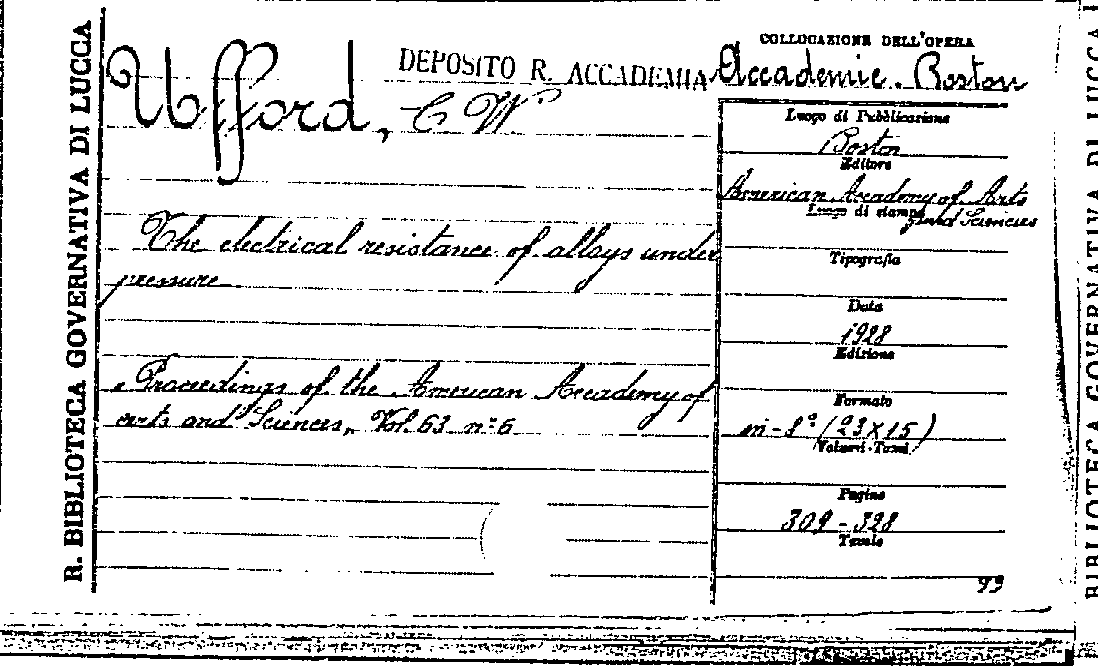 R. BIBLIOTECA GOVERNATIVA DI LUCCA
Ufford, C W
DEPOSITO R. ACCADEMIA
COLLOCAZIONE DELL'OPERA
Accademie. Boston
The electrical resistance of alloys under
pressure
„Proceedings of the American Accademy of
Arts and Sciences„ Vol. 63 n° 6
Luogo di Pubblicazione
Boston
Editore
American Academy of Arts
and Sciences
Luogo di stampa
Tipografia
Data
1928
Edizione
Formato
in-8° (23X15)
Volumi-Tomi
Pagine
309-328
Tavole
93
BIBLIOTECA GOVERNATIVA DI LUCCA